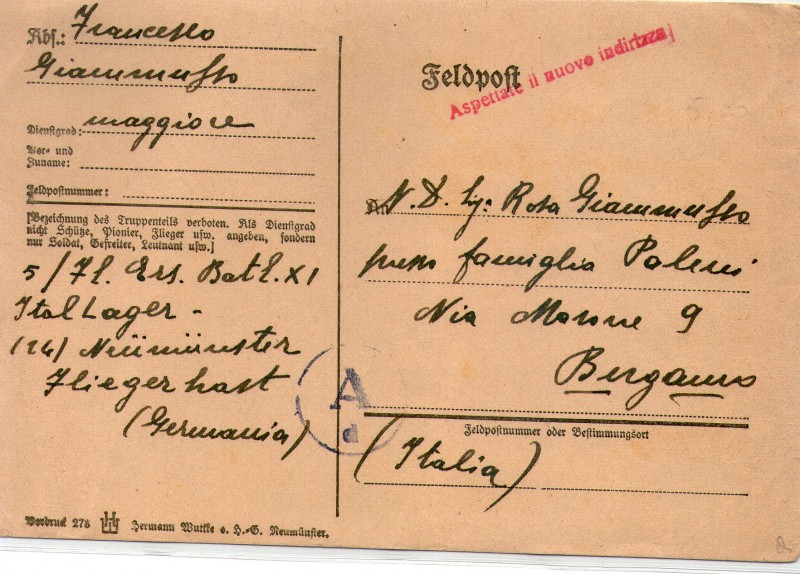 Abs.: Francesco
Giammusso
Dienstgrad: maggiore
Vor- und
Zuname:
Feldpostnummer:
[Bezeichnung des Truppenteils verboten. Als Dienstgrad
nicht Schütze, Pionier, Flieger usw. angeben, sondern
nur Soldat, Gefreiter, Leutnant usw.]
5/Fl. Ers. Batl. XI
Ital Lager -
(24) Neümünster
Fliegerhost
(Germania)
Vordruck 278 Hermann Wuttke o. H.-G. Neumünster.
Feldpost
Aspettate il nuovo indirizzo
N. D. Rosa Giammusso
presso famiglia Paleni
Via Morone 9
Bergamo
Feldpostnummer oder Bestimmungsort
(Italia)
A
d